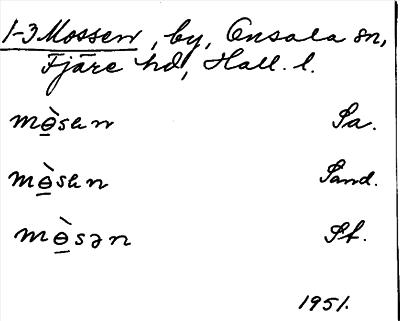 1-3 Mossen, by, Onsala sn,
Fjäre hd, Hall. l.
mɵ̲̀sən Sa.
mɵ̲̀sən Sand.
mɵ̲̀sən St.
1951.